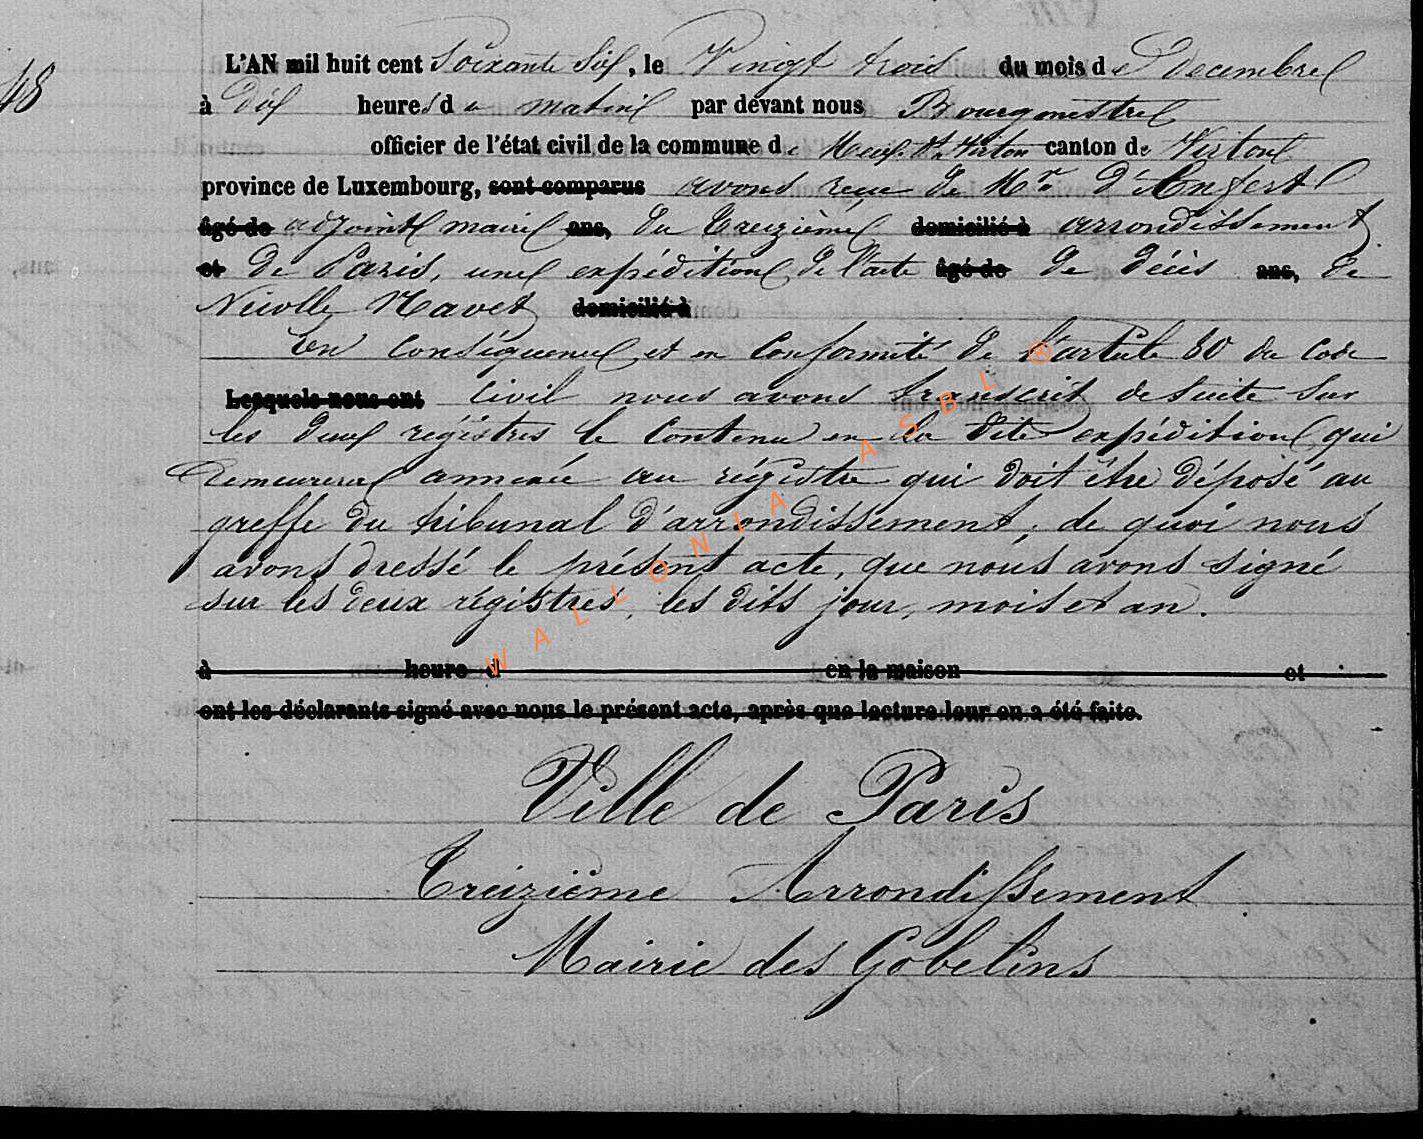 48
L'AN mil huit cent Soixante Six, le Vingt trois du mois de Decembre
à dix heures du matin par devant nous Bourgmestre
officier de l'état civil de la commune de Meix dt Virton canton de Virton
province de Luxembourg, sont comparus avons reçu de Mr. d'Enfert
âgé de adjoint maire ans, du treizième domicilié à arrondissement
et de Paris, une expédition de l'acte âgé de de décès ans, de
Nicolle Navet domicilié à
En conséquence, et en conformité de l'article 80 du Code
Lesquels nous ont Civil nous avons transcrit de suite sur
les deux régistres le contenu en la dite expédition qui
demeurera annexée au régistre qui doit être déposé au
greffe du tribunal d'arrondissement, de quoi nous
avons dressé le présent acte, que nous avons signé
sur les deux régistres, les dits jour, mois et an.
à heure d en la maison et
ont les déclarants signé avec nous le présent acte, après que lecture leur en a été faite.
Ville de Paris
Treizième Arrondissement
Mairie des Gobelins
WALLONIA ASBL ®